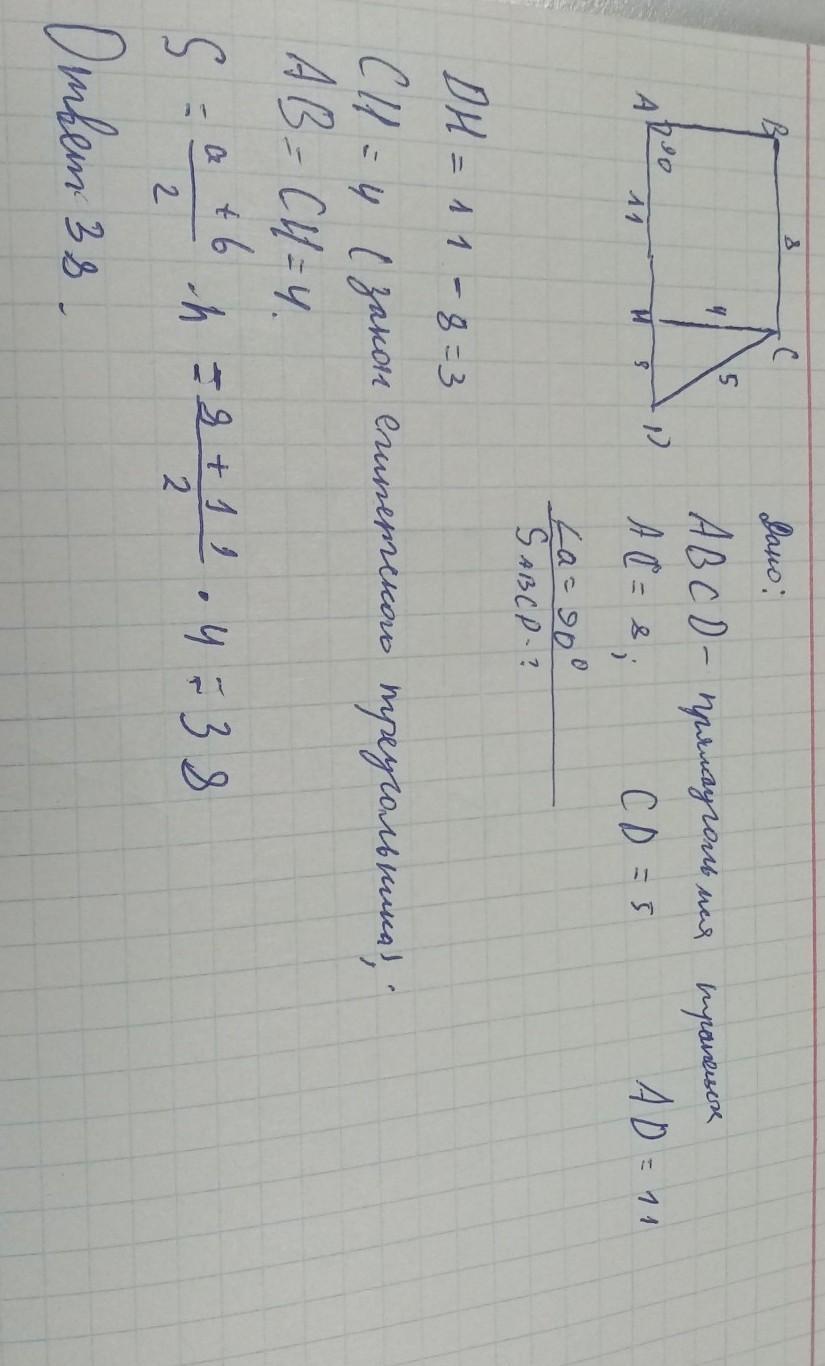 B 8 C
A 90 11 H 3 D
4 5
Дано:
ABCD - прямаугольная трапеция
AC = 8; CD = 5 AD = 11
∠a = 90°
S ABCD - ?
DH = 11 - 8 = 3
CH = 4 (закон египетского треугольника);
AB = CH = 4.
S = a + b / 2 · h = 8 + 11 / 2 · 4 = 38
Ответ 38.